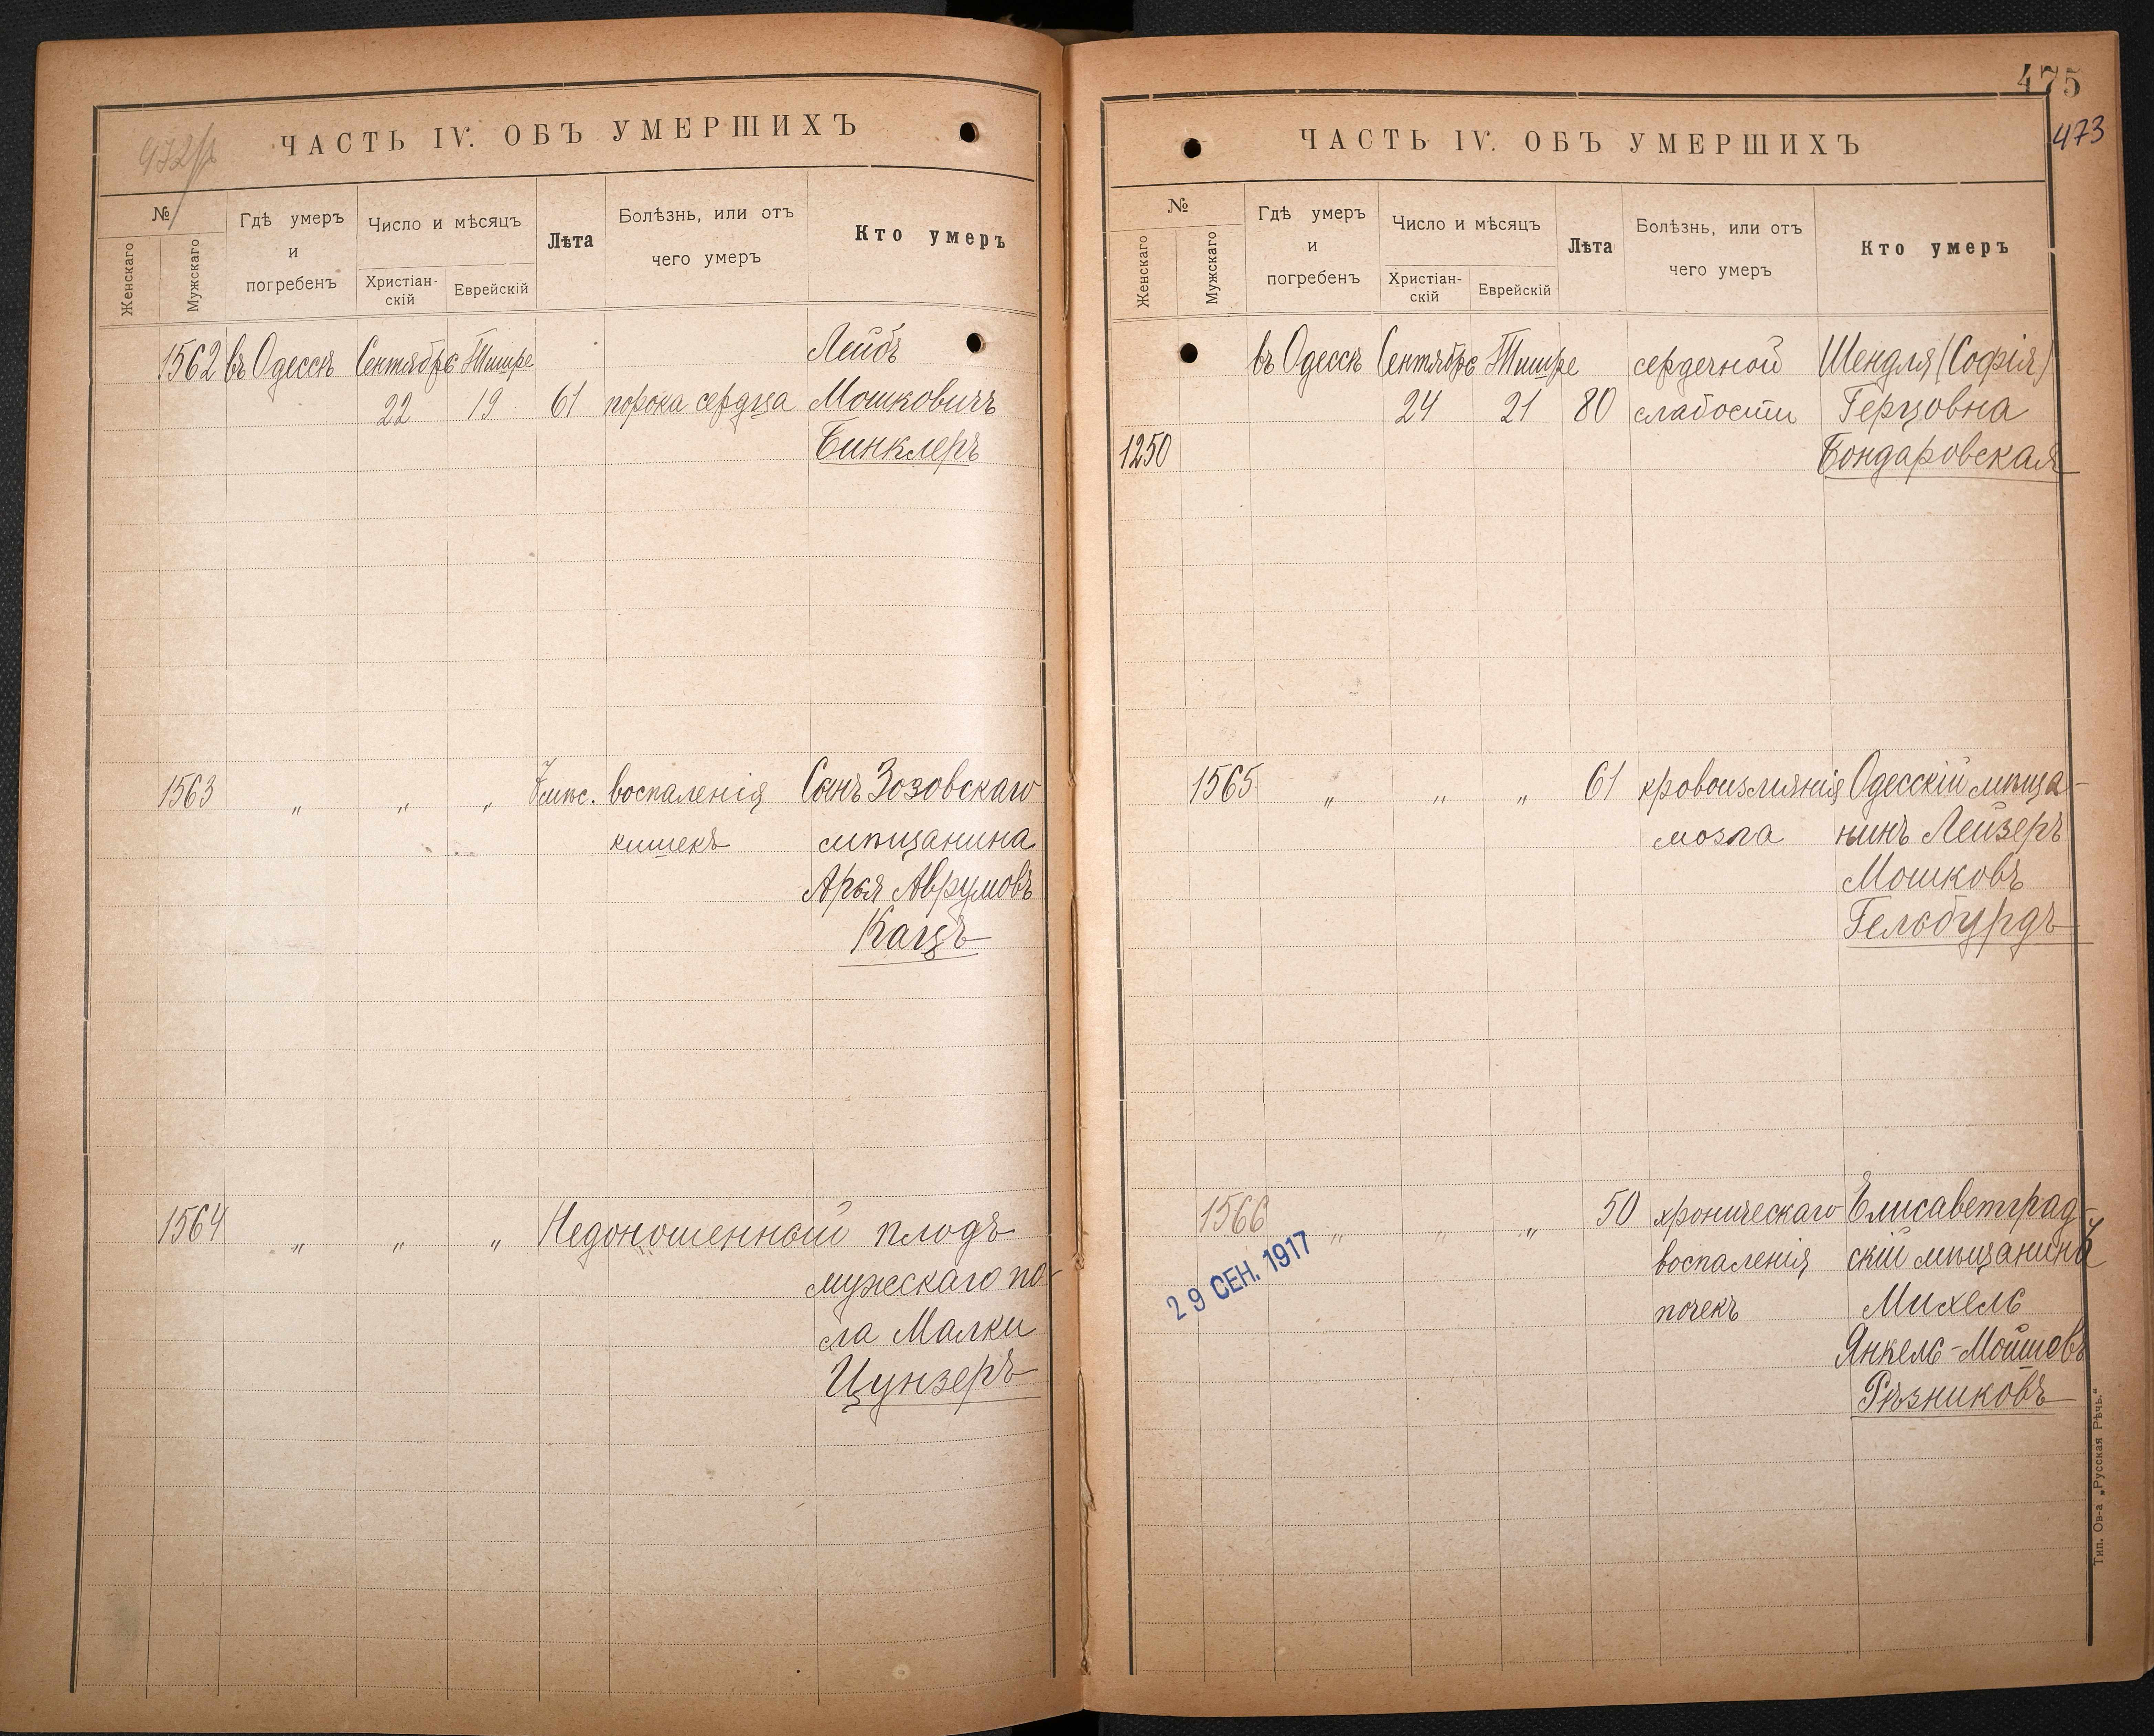 472/
ЧАСТЬ IV. ОБЪ УМЕРШИХЪ
№
Женскаго
Мужскаго
Гдѣ умеръ
и
погребенъ
Число и мѣсяцъ
Христіан-
скій
Еврейскій
Лѣта
Болѣзнь, или отъ
чего умеръ
Кто умеръ
1562 въ Одессѣ Сентябрь Тишре Лейбъ
22 19 61 порока сердца Мошковичъ
Бинклеръ
1563 „ „ „ 7 мѣс. воспаленія Сынъ Зозовскаго
кишекъ мѣщанина
Арья Аврумовъ
Кацъ
1564 „ „ „ Недоношенный плодъ
мужскаго по-
ла Малки
Цунзеръ
475
473
ЧАСТЬ IV. ОБЪ УМЕРШИХЪ
№
Женскаго
Мужскаго
Гдѣ умеръ
и
погребенъ
Число и мѣсяцъ
Христіан-
скій
Еврейскій
Лѣта
Болѣзнь, или отъ
чего умеръ
Кто умеръ
въ Одессѣ Сентябрь Тишре сердечной Шендля (Софія)
24 21 80 слабости Герцовна
1250 Бондаровская
1565 „ „ „ 61 кровоизліянія Одесскій мѣща-
мозга нинъ Лейзеръ
Мошковъ
Гельбурдъ
1566 „ „ „ 50 хроническаго Елисаветград-
воспаленія скій мѣщанинъ
почекъ Михель
Янкель-Мойшовъ
Рѣзниковъ
29 СЕН. 1917
Тип. Ов-а „Русская Рѣчь."